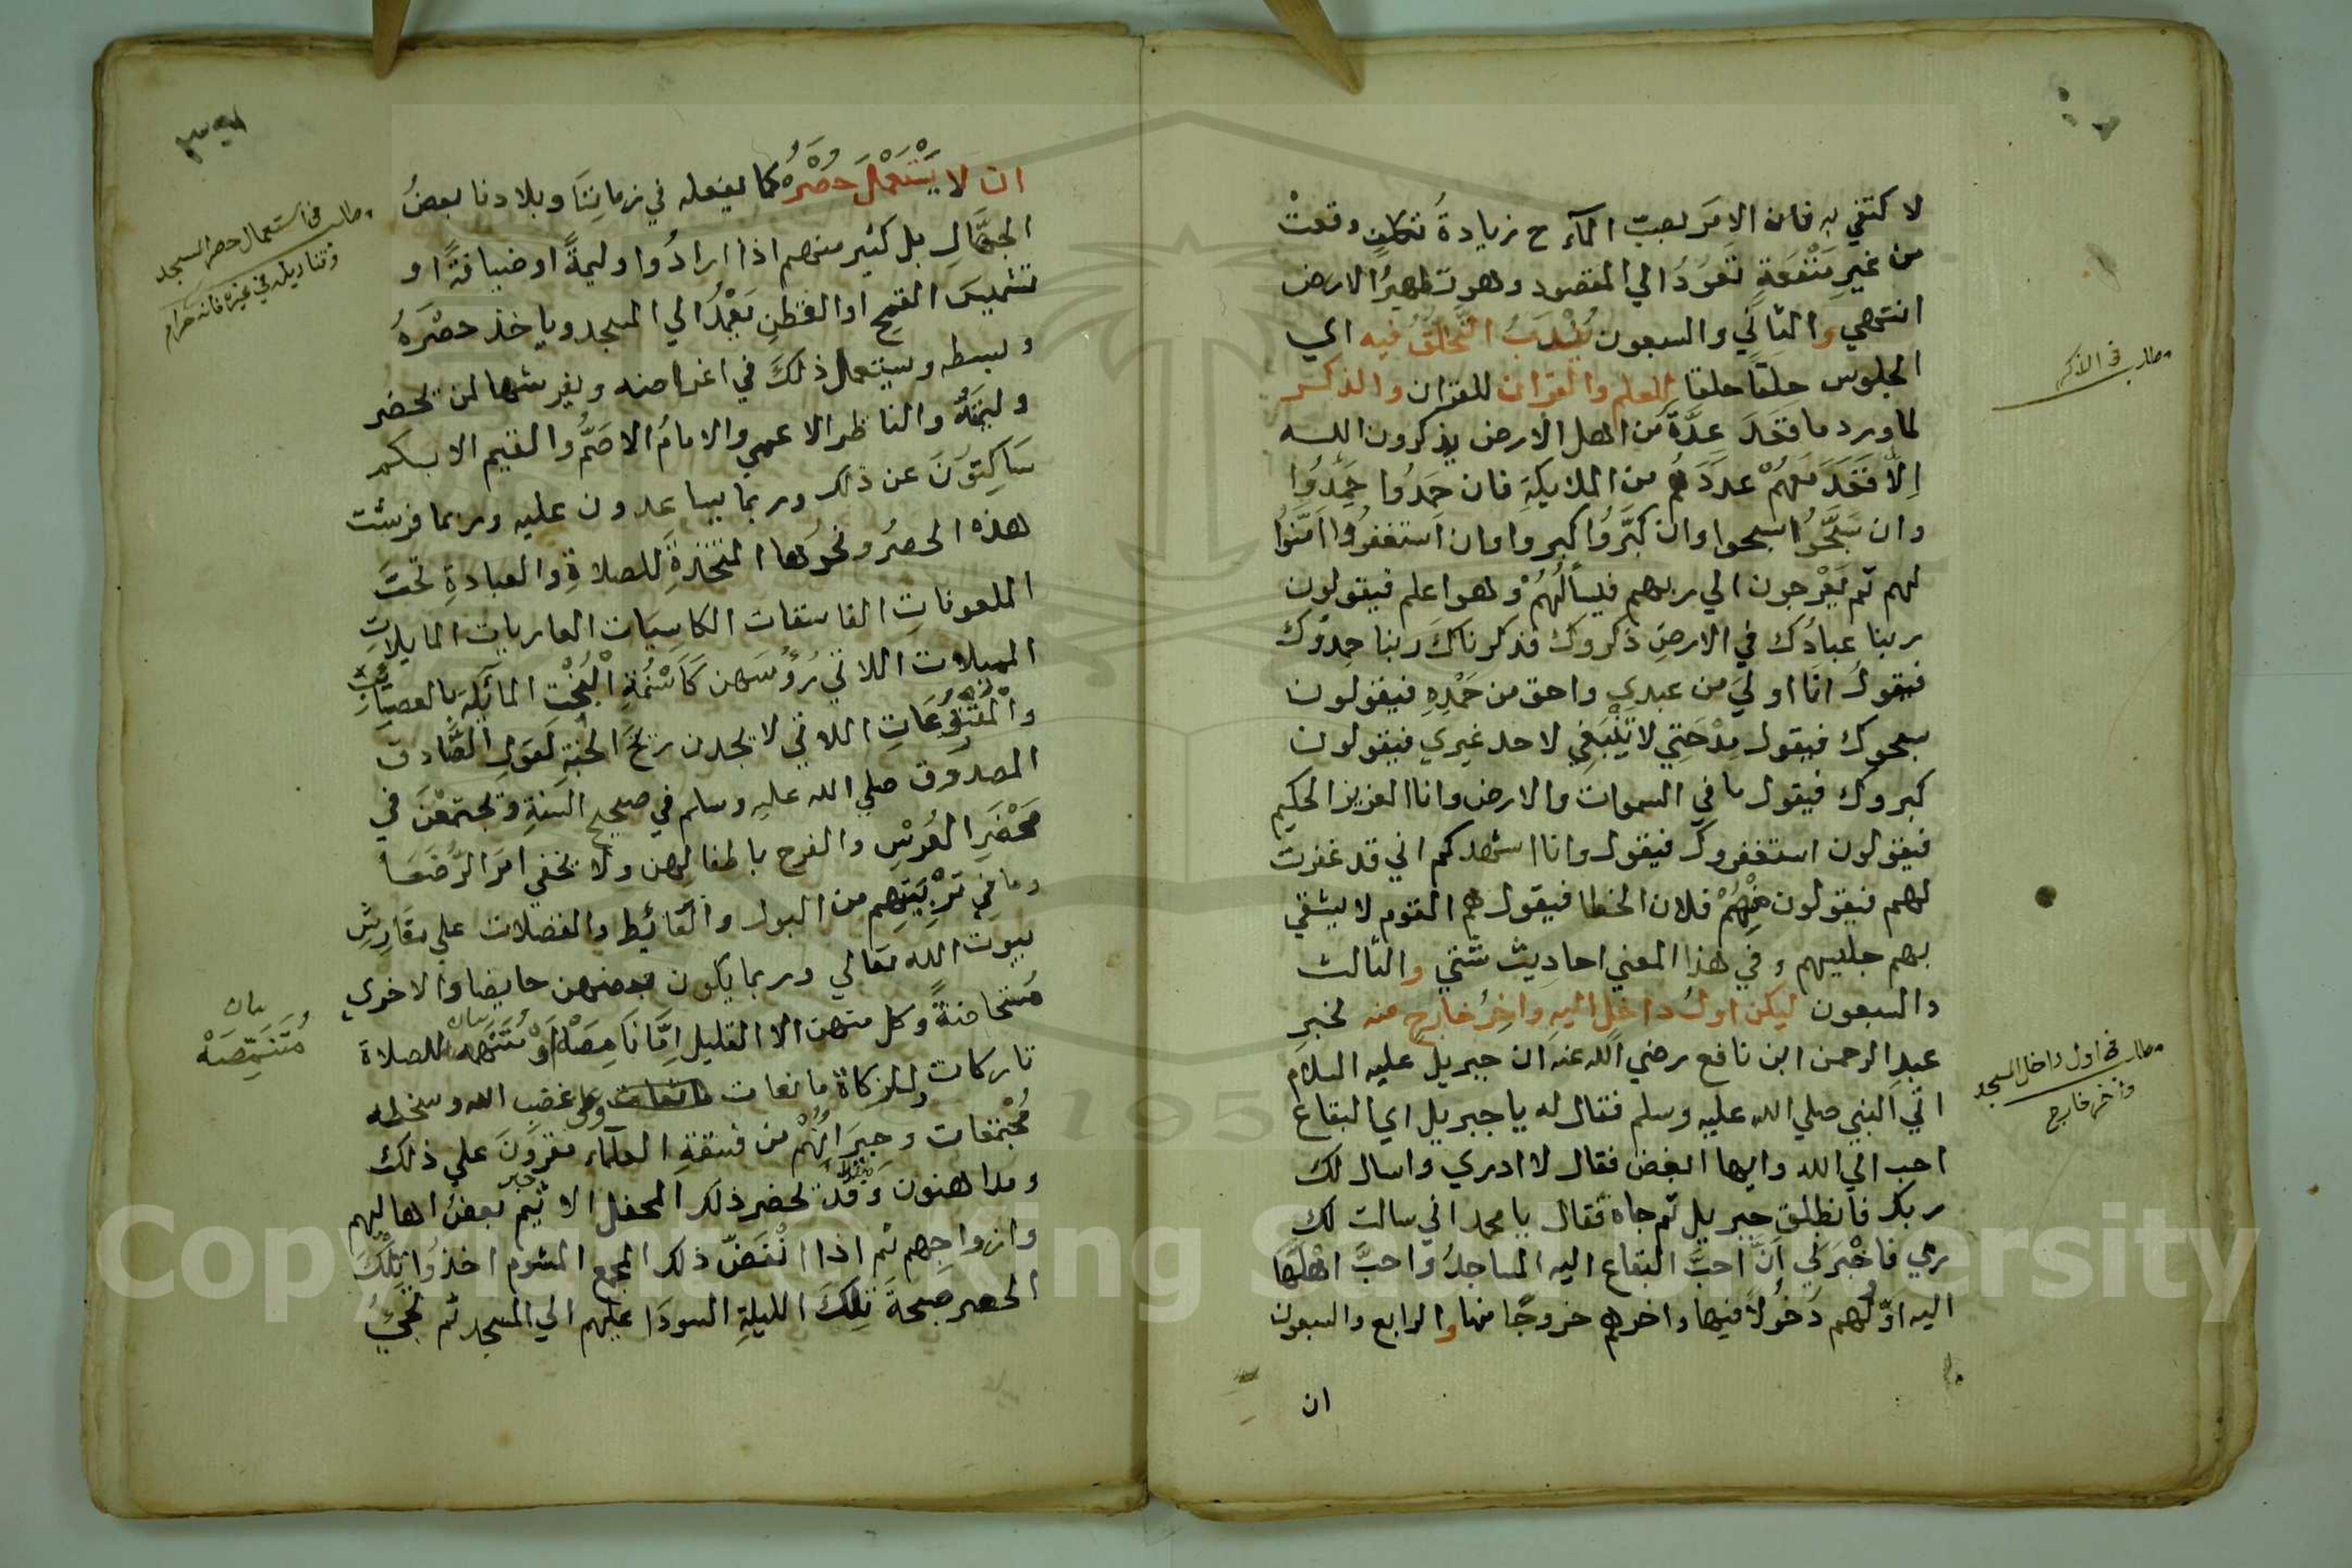 لا كتفي به فان الامر بصب المآء ح زيادةُ وقعتْ
من غيرِ مَنْفَعَةٍ تَعودُ الي المقصود وهو تطهيرُ الارض
انتهي والثاني والسبعون يُنْدَبُ التَّحَلُّقُ فيه اي
الجلوس حلقًا حلقا للعلم والقران للقران والذكر
لما ورد ما قعَدَ عِدَّةٌ من اهل الارض يذكرون الله
اِلّا قَعَدَ مَعهُمْ عدَدَهُم من الملايكةِ فان حَمَدُوا حَمَّدُوا
وان سَبَّحُوا سبحوا وان كبَّرُوا كبروا وان استغفرُوا امَّنُوا
لهم ثم يَعْرجون الي ربهم فيسألُهُمْ وهو اعلم فيقولون
ربنا عبادُك في الارضِ ذكروك فذكرناكَ ربنا حمدُوك
فيقول انا اوليَ من عبدي واحق من حَمْدِهِ فيقولون
سبحوك فيقول مِدْحَتِي لا تَنْبَغِي لاحد غيري فيقولون
كبروك فيقول ما في السموات والارض وانا العزيز الحكيم
فيقولون استغفروك فيقول وانا اشهدكم اني قد غفرت
لهم فيقولون فِيْهِمْ فلان الخطا فيقول هم القوم لا يشقي
بهم جليسهم وفي هذا المعني احاديث شتي والثالث
والسبعون ليكن اولُ داخلٍ اليه واخِرُ خارجٍ منه لخبرِ
عبد الرحمن ابن نافع رضي الله عنه ان جبريل عليه السلام
اتي النبي صلي الله عليه وسلم فقال له يا جبريل اي البقاع
احب الي الله وايها ابغض فقال لا ادري واسال لك
ربك فانطلق جبريل ثم جاه فقال يا محمد اني سالت لك
ربي فاخْبَرَني اَنَّ احبَّ البقاع اليه المساجدُ واحبَّ اهْلَها
اليه اوّلُهم دُخُولاً فيها واخرهم خروجًا منها والرابع والسبعون
ان
مطلب في الذكر
مطلب في اول داخل المسجد
واخر خارج
ان لا يَسْتَعْمِلَ حُصْرَهُ كما يفعله في زمانِنَا وبلادنا بعضُ
الجهَّالِ بل كثير منهم اذا ارادُوا وليمةً او ضيافةً او
تشميسَ القمحِ او القطنِ يَعْمِدُ الي المسجد وياخذ حصْرَهُ
وبسطه ويستعمل ذلكَ في اغراضه ويفرشها لمن تحضر
وليمَتَهُ والناظر الاعمي والامامُ الاصَمُّ والقيم الابكم
سَاكِتوُنَ عن ذلك وربما يساعدون عليه وربما فرشت
هذه الحصرُ ونحوُها المتخذةِ للصلاةِ والعبادةِ تحتَ
الملعوناتِ الفاسقات الكاسِيَات العاريات المايلاتِ
المميلات اللاتي رُؤُسَهن كَاَسْنِمَةِ الْبُخْتِ المآئِلَةِ بالعصاب
اللاتي لا يجدن ريحَ الجنةِ لقولِ الصَّادق
المصدوق صلي الله عليه وسلم في صحيح السنةِ وتجتمعْنَ في
مَحْضَرِ العُرْسِ والفرح باطفالهن ولا يخفي امرَ الرُّضَعَآ
وما في تَرْبِيَتِهِم من البول والغآئِطِ والفضلات علي مفارِشِ
بيوت الله تعالي وربما يكون بعضهن حايضا والاخري
مُستحاضةً وكل منهن الا القليل اِمَّا نَامِصَة اَوْ للصلاة
تاركات وللزكاة مانعات وعلي غضب الله وسخطه
مُجْتَمِعَات وجيرَانُهُمْ من فسقةِ العلمآء مقرون علي ذلك
ومداهنون وقَدْ تحضر ذلك المحفل الاثيم بعضُ اهاليهم
وازواجِهم ثم اذا انْفَضَّ ذلك المجمع المشوم اخذوا تِلْكَ
الحصر صبحةَ تِلكَ الليلةِ السودَا عليهم الي المسجد ثم تجئُ
مطلب في استعمال حصر المسجد
وقناديله في غيره فانه حرام
بيان
مُتَنَمِّصَهْ
Copyright © King Saud University
195